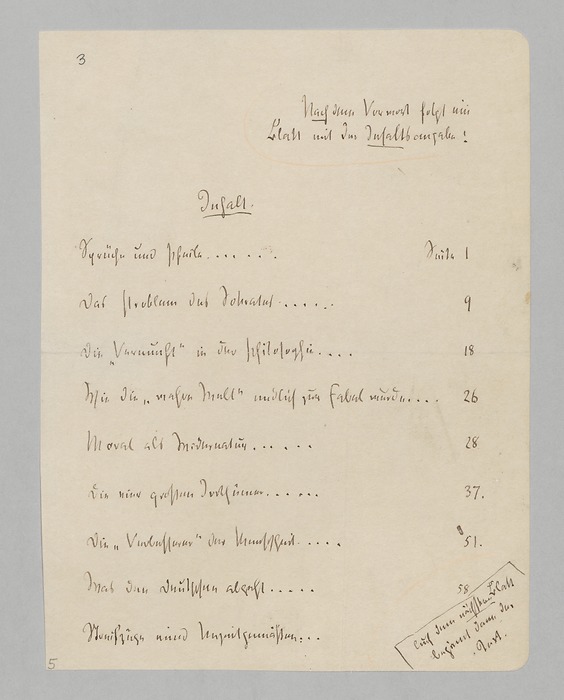 3
Nach dem Vorwort folgt ein
Blatt mit der Inhaltsangabe!
Inhalt.
Sprüche und Pfeile...... Seite 1
Das Problem des Sokrates...... 9
Die „Vernunft" in der Philosophie.... 18
Wie die „wahre Welt" endlich zur Fabel wurde.... 26
Moral als Widernatur...... 28
Die vier grossen Irrthümer...... 37.
Die „Verbesserer" der Menschheit..... 51.
Was den Deutschen abgeht..... 58
Streifzüge eines Unzeitgemässen...
Auf dem nächsten Blatt
beginnt dann der
Text.
5